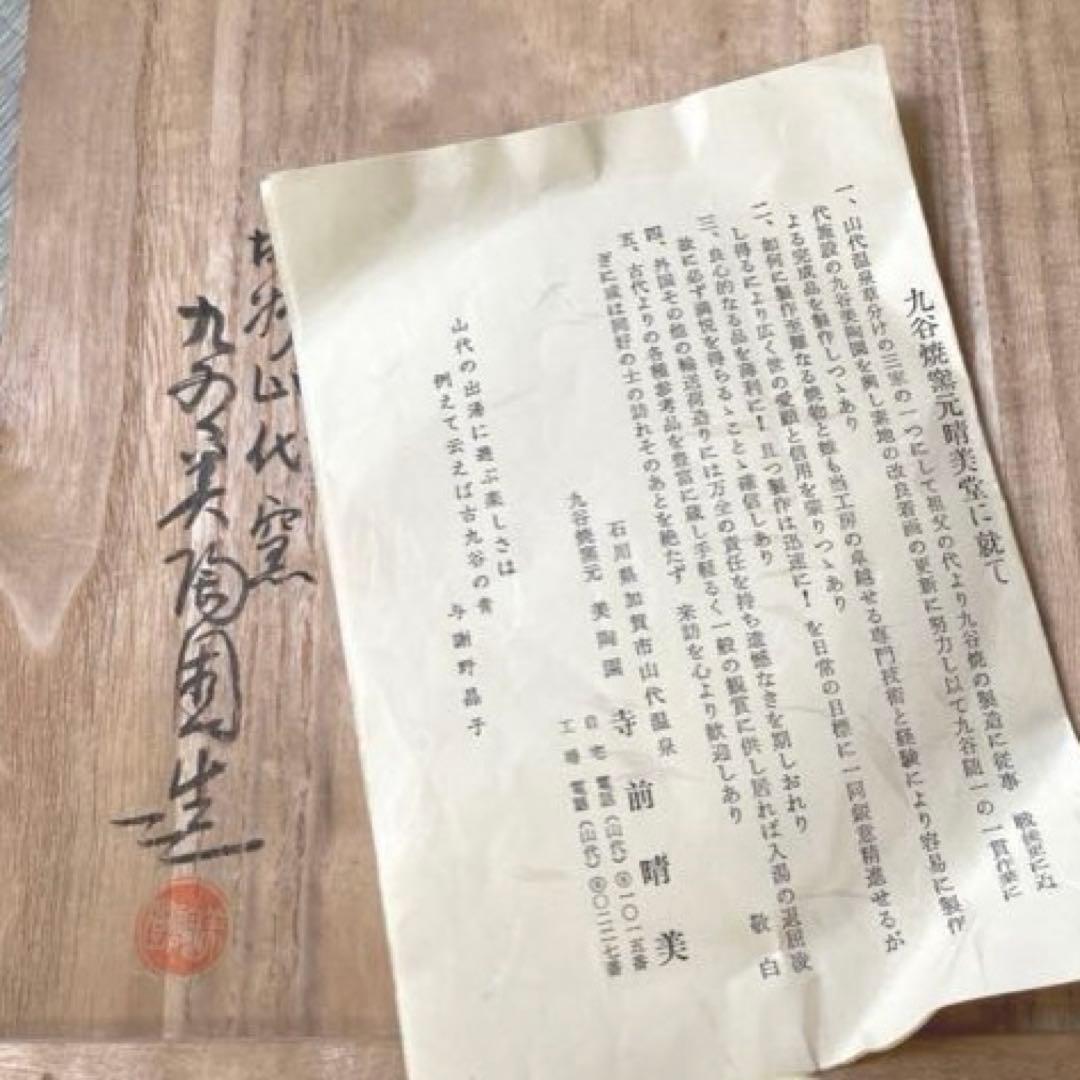 九谷焼窯元晴美堂に就て
一、山代温泉草分けの三家の一つにして祖父の代より九谷焼の製造に従事 戦後更に近
代施設の九谷美陶園を興し素地の改良着画の更新に努力し以て九谷随一の一貫作業に
よる完成品を製作しつゝあり
二、如何に製作至難なる焼物と雖も当工房の卓越せる専門技術と経験により容易に製作
し得るにより広く世の愛顧と信用を蒙りつゝあり
三、良心的なる品を薄利に! 且つ製作は迅速に! を日常の目標に一同鋭意精進せるが
故に必ず満悦を得らるゝことゝ確信しあり
四、外国その他の輸送荷造りには万全の責任を持ち遺憾なきを期しおれり
五、古代よりの各種参考品を豊富に蔵し手軽るく一般の観賞に供し居れば入湯の退屈凌
ぎに或は同好の士の訪れそのあとを絶たず 来訪を心より歓迎しあり
敬白
石川県加賀市山代温泉
九谷焼窯元 美陶園 寺前晴美
自宅 電話(山代)⑥一〇一五番
工場 電話(山代)⑥〇二二七番
山代の出湯に遊ぶ楽しさは
例えて云えば古九谷の青
与謝野晶子
山代窯
九谷美陶園生